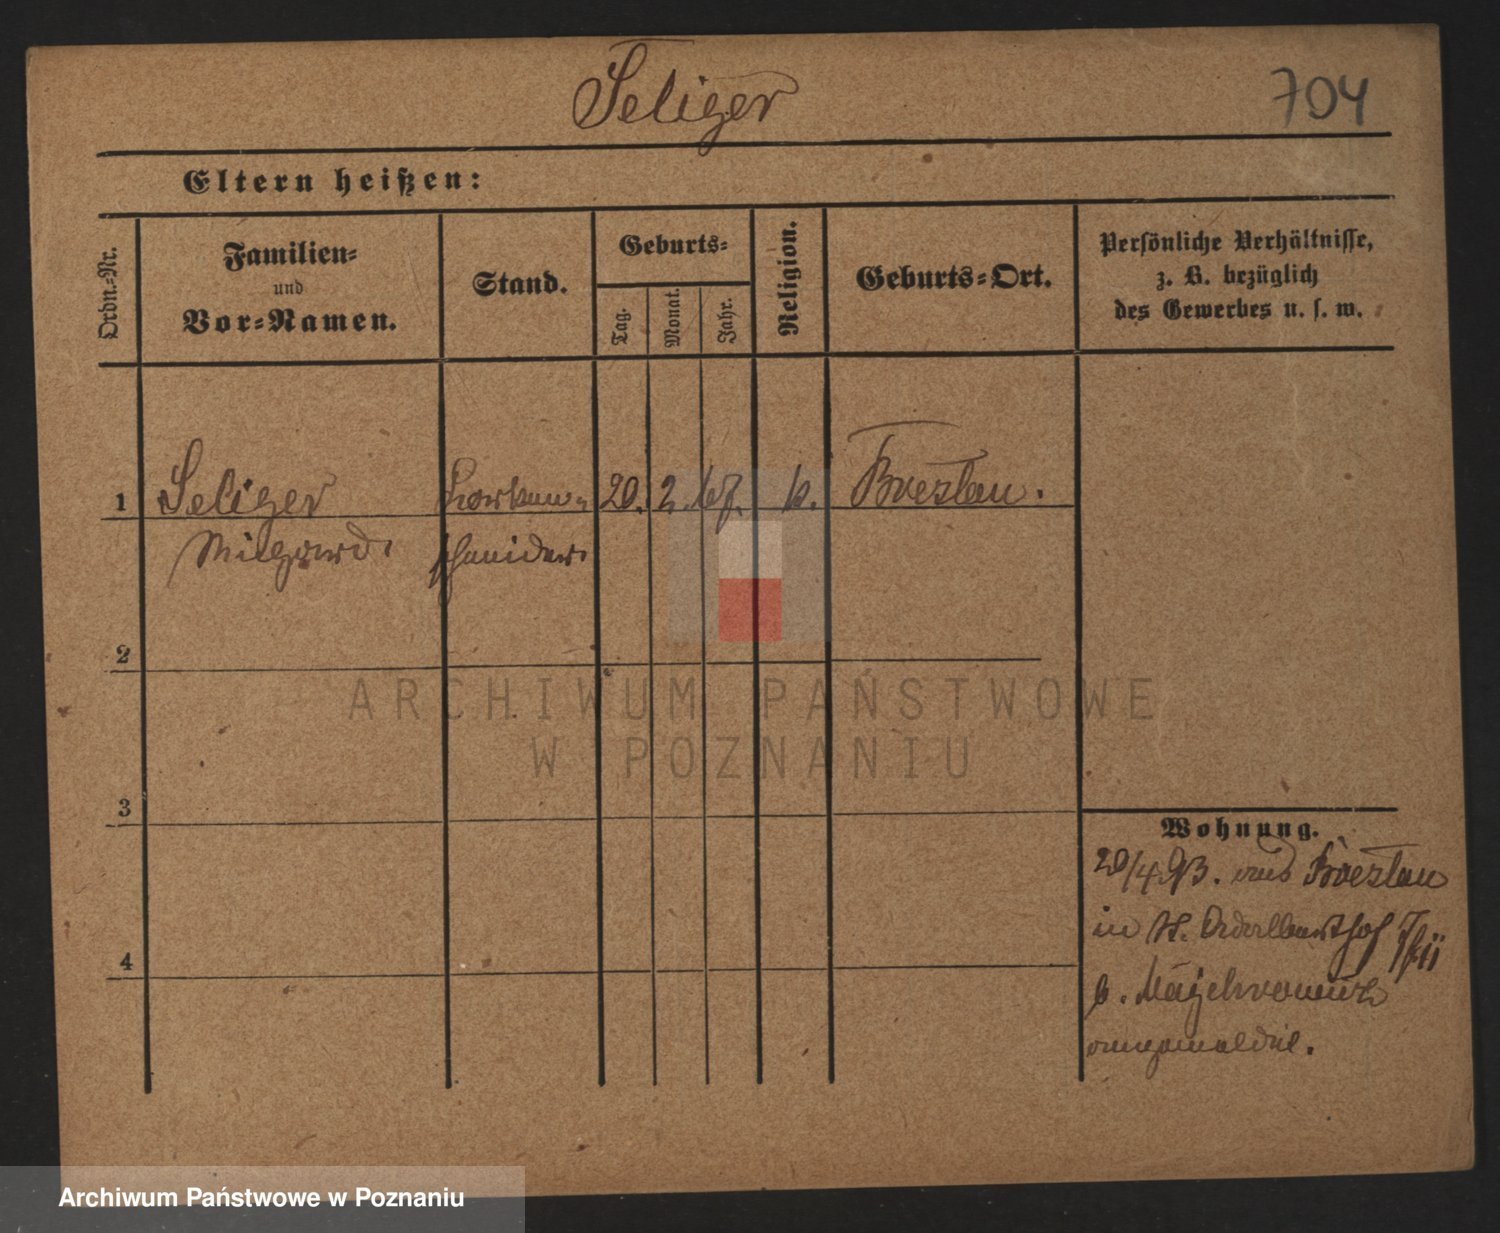 Seliger
704
Eltern heißen:
Ordn.-Nr.
Familien-
und
Vor-Namen.
Stand.
Geburts-
Tag.
Monat.
Jahr.
Religion.
Geburts-Ort.
Persönliche Verhältnisse,
z. B. bezüglich
des Gewerbes u. s. w.
1 Seliger 20. 2. 67. k. Breslau.
2
3
4
Wohnung.
20/4 93. aus Breslau
in St.
b.
angemeldet.
ARCHIWUM PAŃSTWOWE
W POZNANIU
Archiwum Państwowe w Poznaniu